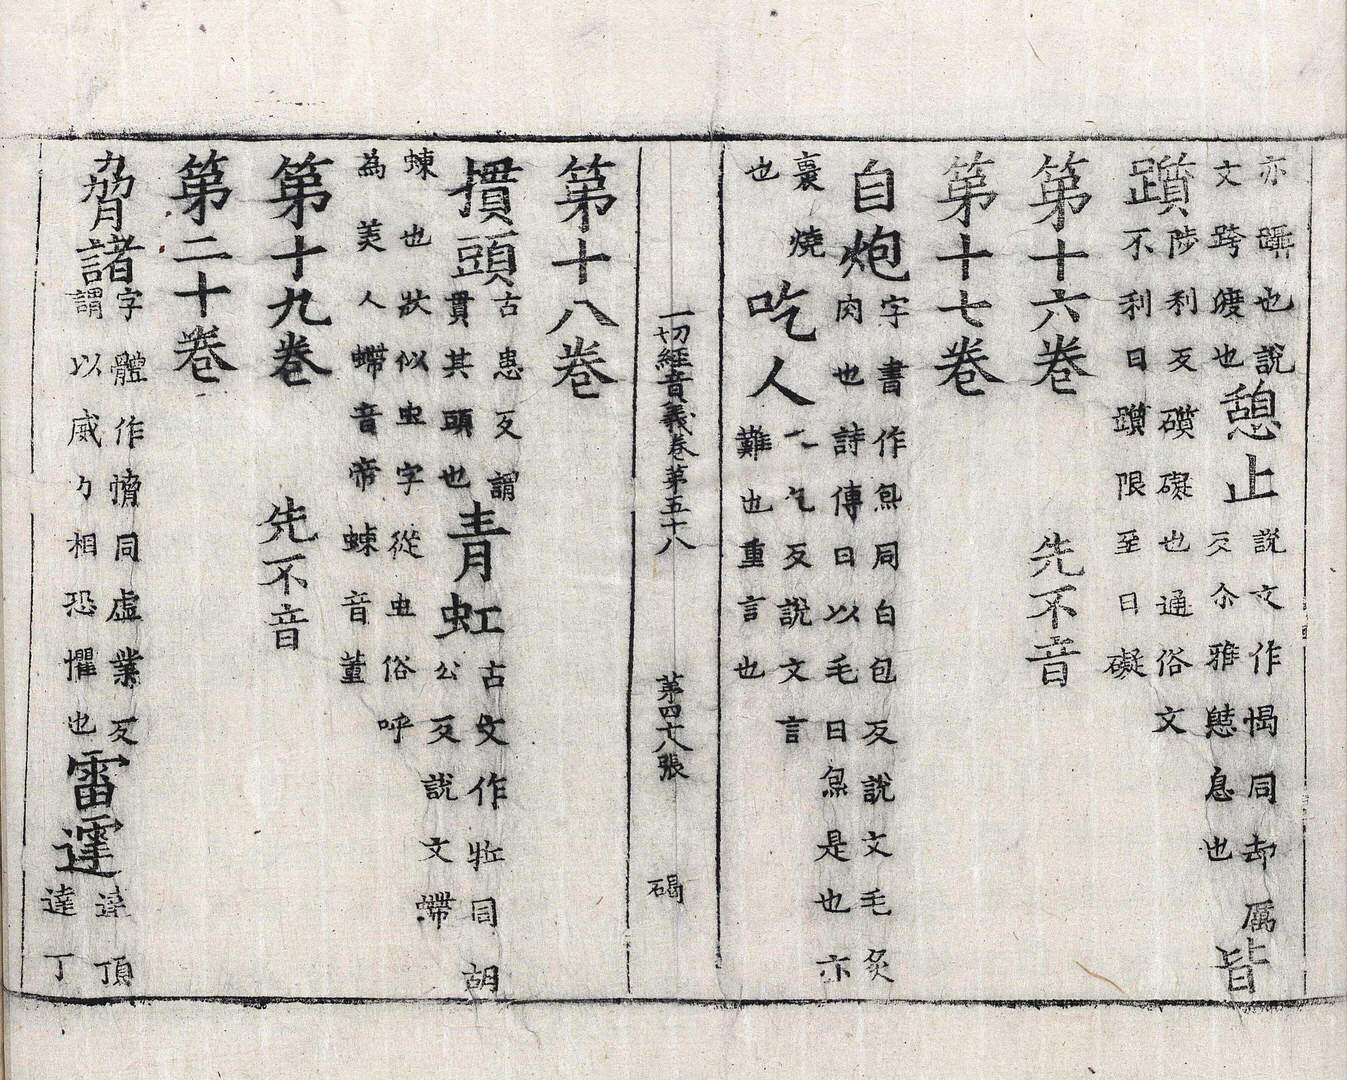 亦躡也說
文跨渡也
憩止
說文作愒同却厲
反尒雅憩息也
皆
躓
陟利反礩礙也通俗文
不利曰躓限至曰礙
第十六卷 先不音
第十七卷
自炮
字書作炰同白包反說文毛炙
肉也詩傳曰以毛曰炰是也亦
裹燒
也
吃人
一乞反說文言
難也重言也
一切經音義卷第五十八 第四十八張 碣
第十八卷
摜頭
古患反謂
貫其頭也
青虹
古文作羾同胡
公反說文螮
蝀也狀似虫字從虫俗呼
為美人螮音帝蝀音董
第十九卷 先不音
第二十卷
脅諸
字體作愶同虛業反
謂以威力相恐懼也
雷霆
達頂
達丁